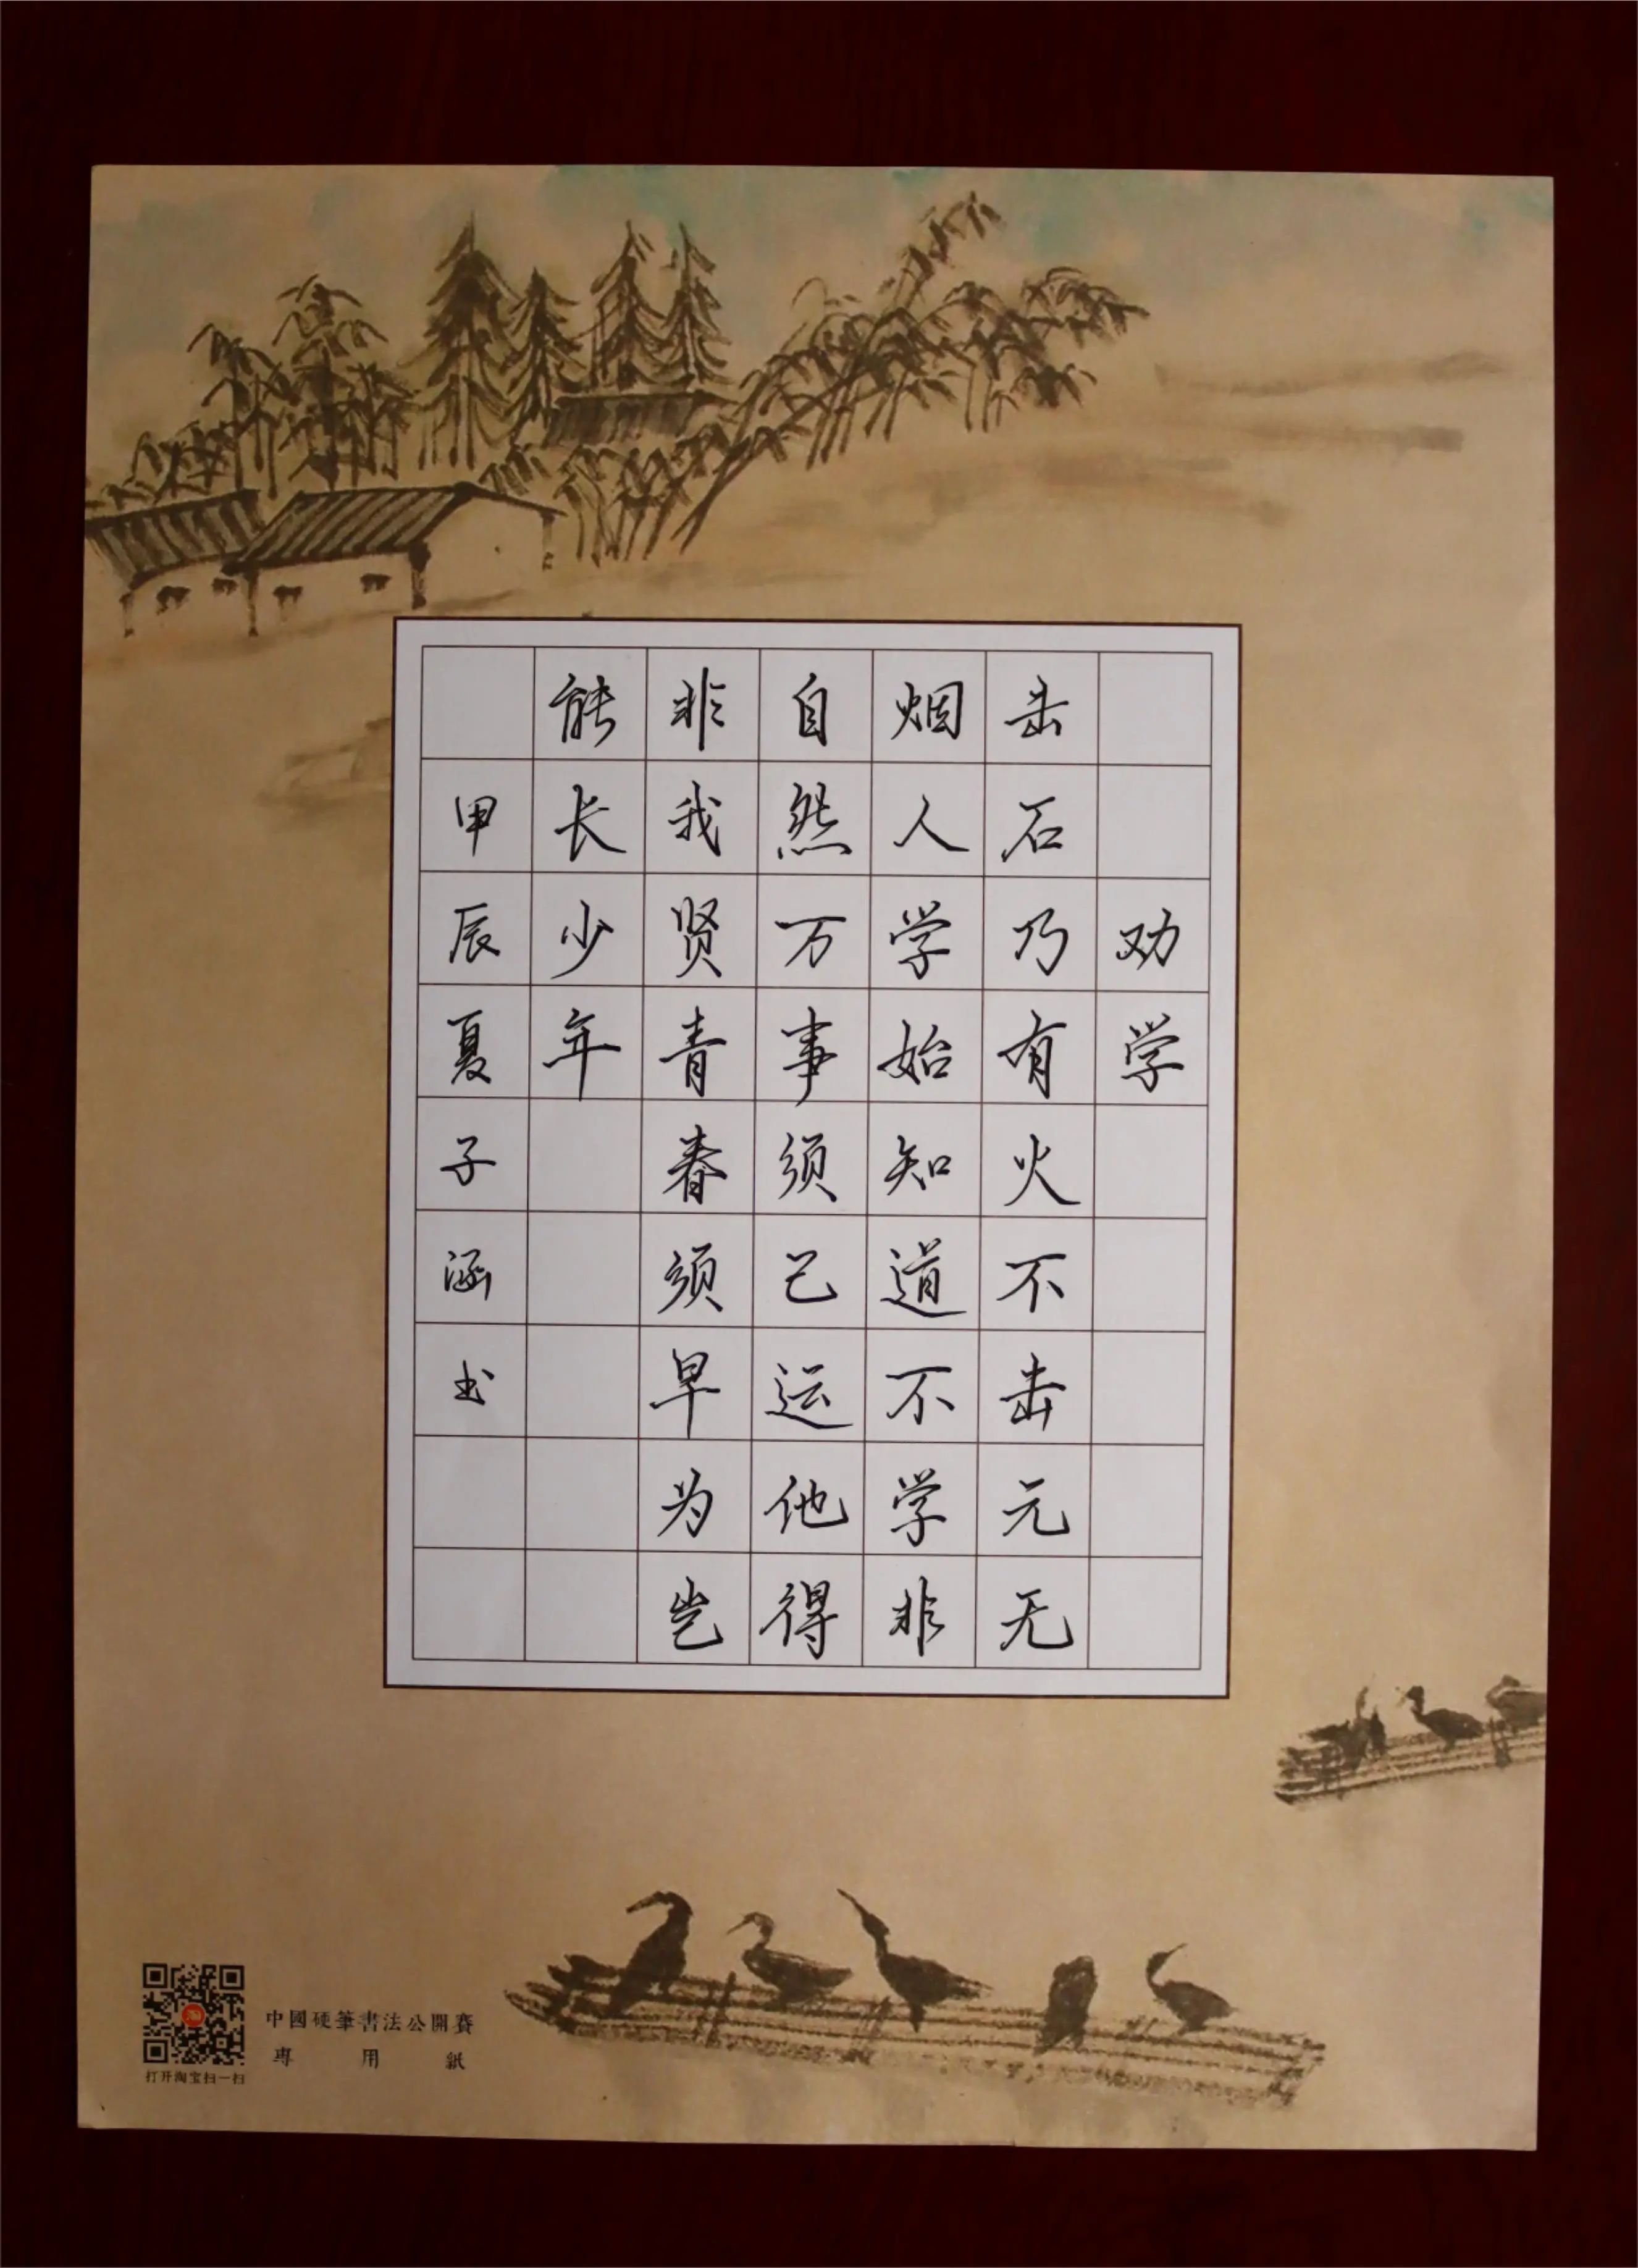 劝学
击石乃有火不击元无
烟人学始知道不学非
自然万事须己运他得
非我贤青春须早为岂
能长少年
甲辰夏子涵书
淘
打开淘宝扫一扫
中國硬筆書法公開賽
專用紙